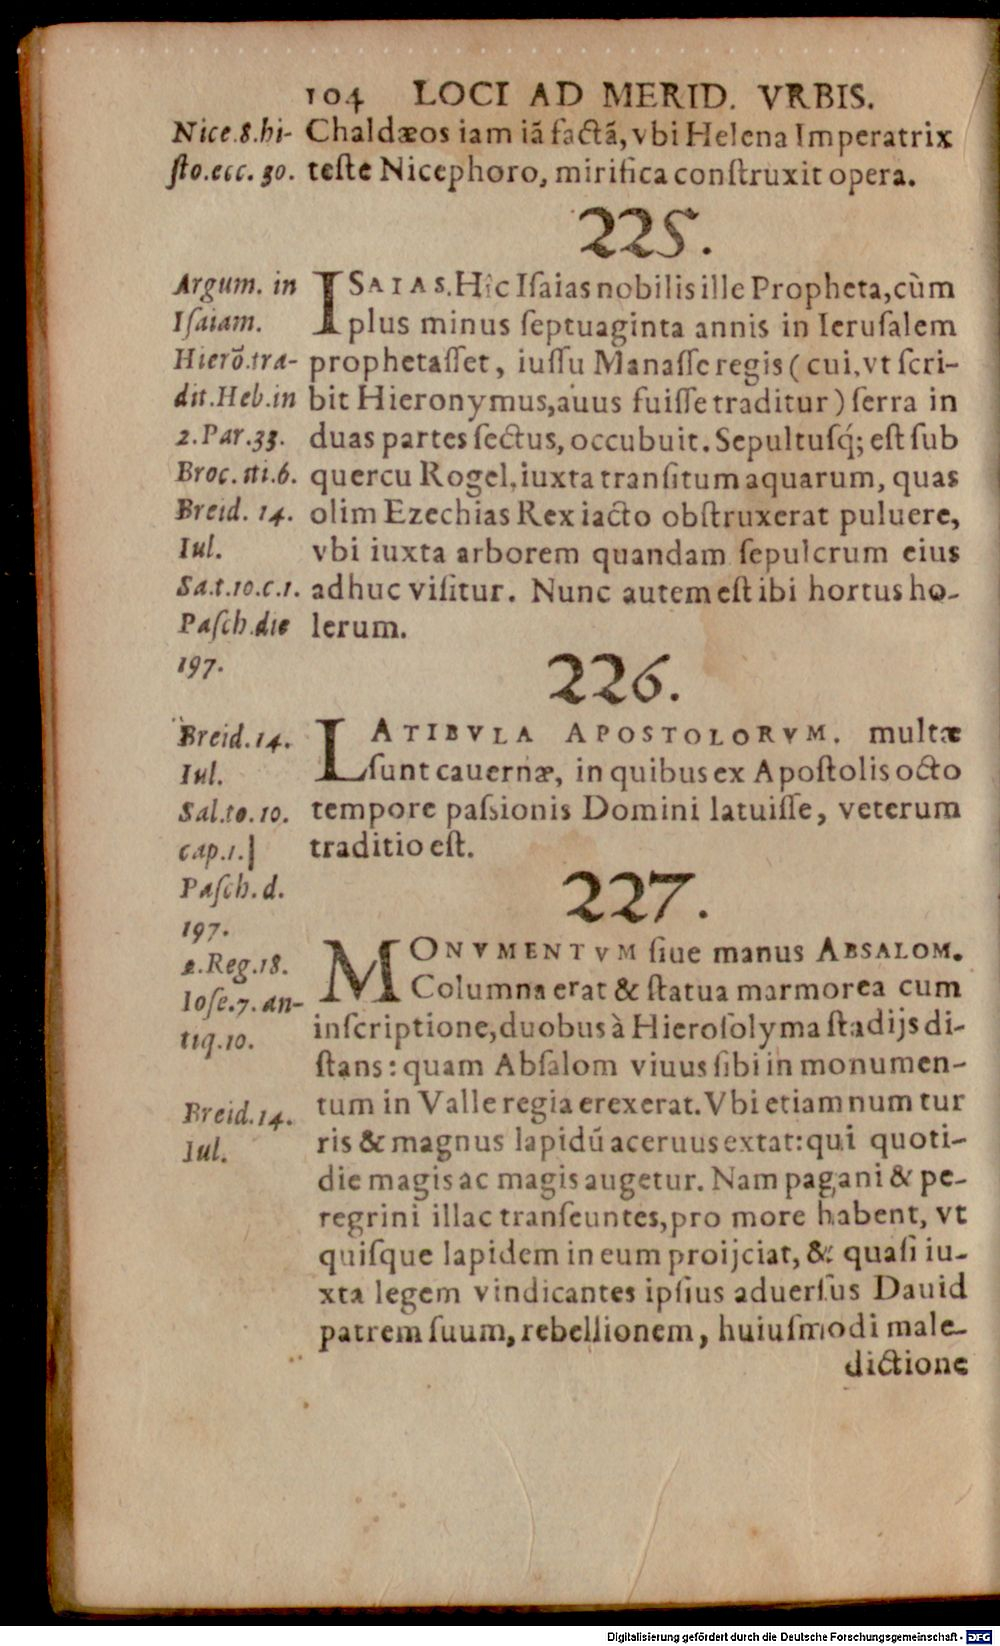 104 LOCI AD MERID. VRBIS.
Nice.8.hi-
Chaldæos iam iã factã, vbi Helena Imperatrix
ſto.ecc. 30.
teſte Nicephoro, mirifica conſtruxit opera.
225.
Argum. in
ISAIAS. Hîc Iſaias nobilis ille Propheta, cùm
Iſaiam.
plus minus ſeptuaginta annis in Ieruſalem
Hierõ.tra-
prophetaſſet, iuſſu Manaſſe regis (cui, vt ſcri-
dit.Heb.in
bit Hieronymus, auus fuiſſe traditur) ſerra in
2.Par.33.
duas partes ſectus, occubuit. Sepultuſq́; eſt ſub
Broc. iti.6.
quercu Rogel, iuxta tranſitum aquarum, quas
Breid. 14.
olim Ezechias Rex iacto obſtruxerat puluere,
Iul.
vbi iuxta arborem quandam ſepulcrum eius
Sa.t.10.c.1.
adhuc viſitur. Nunc autem eſt ibi hortus ho-
Paſch.die
lerum.
197.
226.
Breid.14.
LATIBVLA APOSTOLORVM. multæ
Iul.
ſunt cauernæ, in quibus ex Apoſtolis octo
Sal.to.10.
tempore paſsionis Domini latuiſſe, veterum
cap.1.|
traditio eſt.
Paſch.d.
197.
227.
2.Reg.18.
MONVMENTVM ſiue manus ABSALOM.
Ioſe.7.an-
Columna erat & ſtatua marmorea cum
tiq.10.
inſcriptione, duobus à Hieroſolyma ſtadijs di-
ſtans: quam Abſalom viuus ſibi in monumen-
Breid.14.
tum in Valle regia erexerat. Vbi etiam num tur
Iul.
ris & magnus lapidũ aceruus extat: qui quoti-
die magis ac magis augetur. Nam pagani & pe-
regrini illac tranſeuntes, pro more habent, vt
quiſque lapidem in eum proijciat, & quaſi iu-
xta legem vindicantes ipſius aduerſus Dauid
patrem ſuum, rebellionem, huiuſmodi male-
dictione
Digitalisierung gefördert durch die Deutsche Forschungsgemeinschaft - DFG